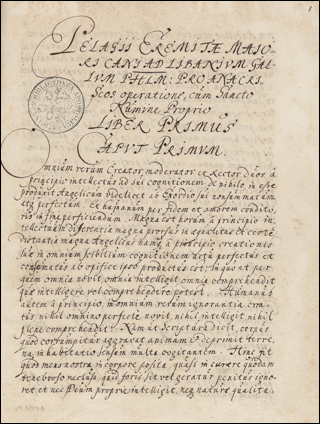 PELAGII EREMITÆ MAIORI
RICANI AD LIBANIUM GAL
LUM PHLM: PRO ANACRI
seos operatione, cum Sancto
Numine Proprio
LIBER PRIMUS
CAPUT PRIMUM.
Omnium rerum Creator, moderator et Rector Deus à
principio intellectus ad sui cognitionem de nihilo in esse
produxit Angelicum videlicet ab Exordio sui consummatum
atq perfectum. Et humanum per fidem et amorem condito,
rio in fine perficiendum. Magna est horum à principio in,
tellectuum differentia magna prorsus inæqualitas et certe
distantia magna Angelicus namq à principio creationis
suæ in omnium scibilium cognitionem actu perfectus et
consumatus ab opifice ipso productus est; in quo et per
quem omnia novit, omnia intelligit omnia comprehendit
quæ intelligere vel comprehendere potest. Humanus
autem à principio, in omnium rerum ignorantia crea,
tus nihil omnino perfectè novit, nihil intelligit, nihil
plenè comprehendit. Nam ut Scriptura dicit, corpus
quod corrumpitur aggravat animam & deprimit terre,
na, inhabitatio sensum multa cogitantem. Hinc fit
quod mens nostra in corpore posita, quasi in carcere quodam
tenebroso reclusa, quid foris sit vel geratur penitus igno,
ret et nec Deum proprie intelligit, neq naturæ qualita,